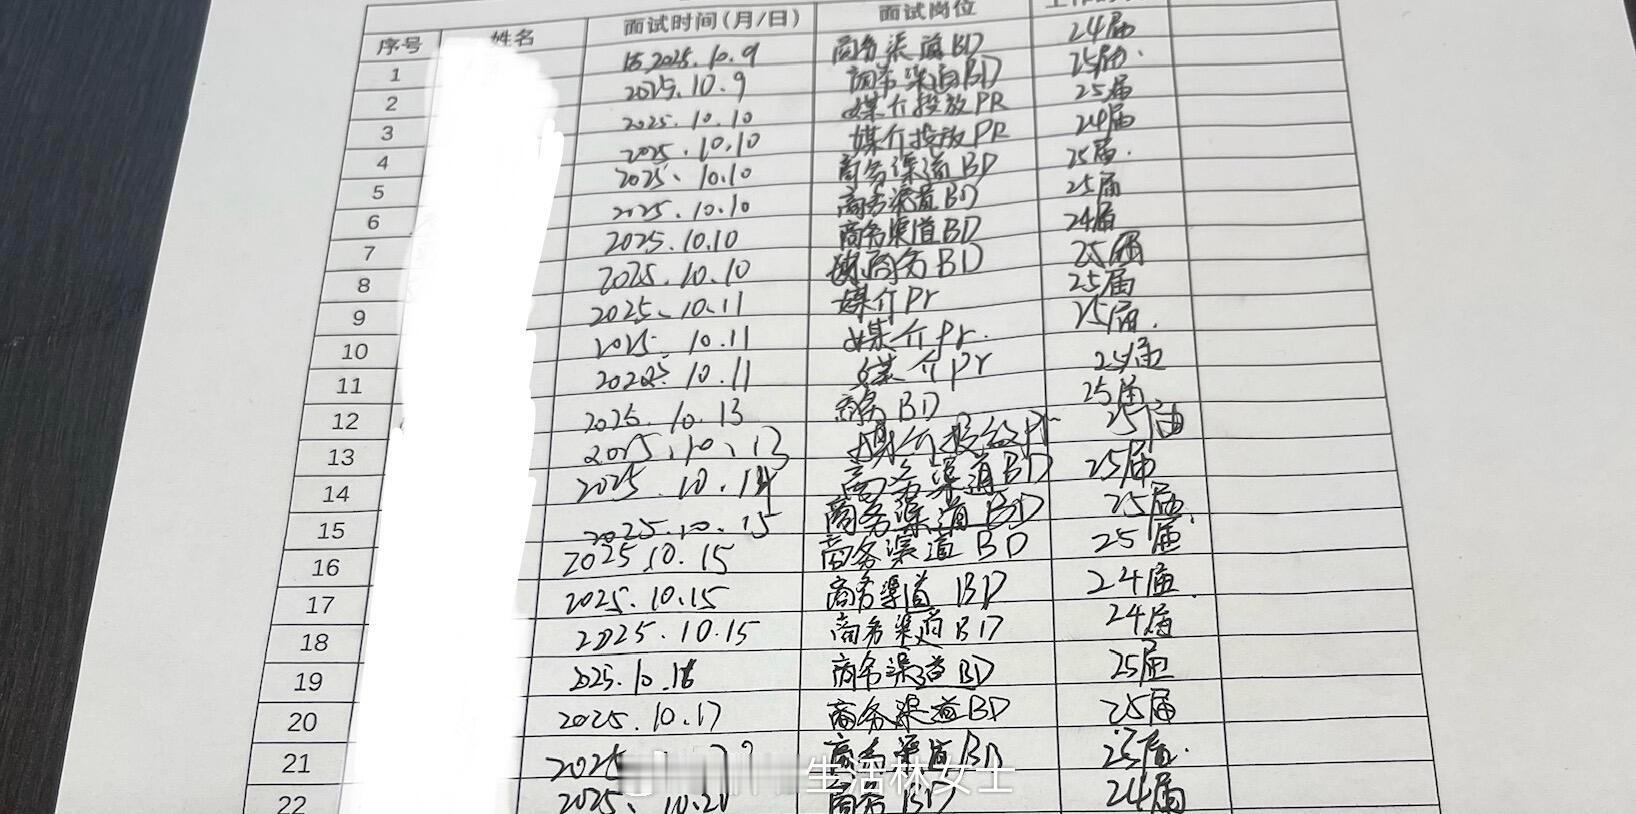 序号 姓名 面试时间(月/日) 面试岗位
1 2025.10.9 商务渠道BD 24届
2 2025.10.9 商务渠道BD 25届.
3 2025.10.10 媒介投放PR 25届
4 2025.10.10 媒介投放PR 24届
5 2025、10.10 商务渠道BD 25届.
6 2025.10.10 商务渠道BD 25届
7 2025.10.10 商务渠道BD 24届
8 2025.10.10 商务BD 25届
9 2025、10.11 媒介Pr 25届
10 2025.10.11 媒介Pr. 25届.
11 2025.10.11 媒介Pr 25届
12 2025.10.13 商务BD 25届
13 2025、10、13 媒介投放Pr 25届
14 2025.10.14 商务渠道BD 25届
15 2025.10.15 商务渠道BD 25届.
16 2025.10.15 商务渠道BD 25届
17 2025.10.15 商务渠道BD 24届.
18 2025.10.15 商务渠道BD 24届
19 2025.10.16 商务渠道BD 25届
20 2025.10.17 商务渠道BD 25届
21 2025 商务渠道BD 25届.
生活林女士
22 2025、10.20 商务BD 24届